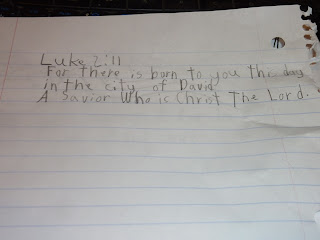 Luke 2:11
For there is born to you this day
in the city of David
A Savior Who is Christ The Lord.